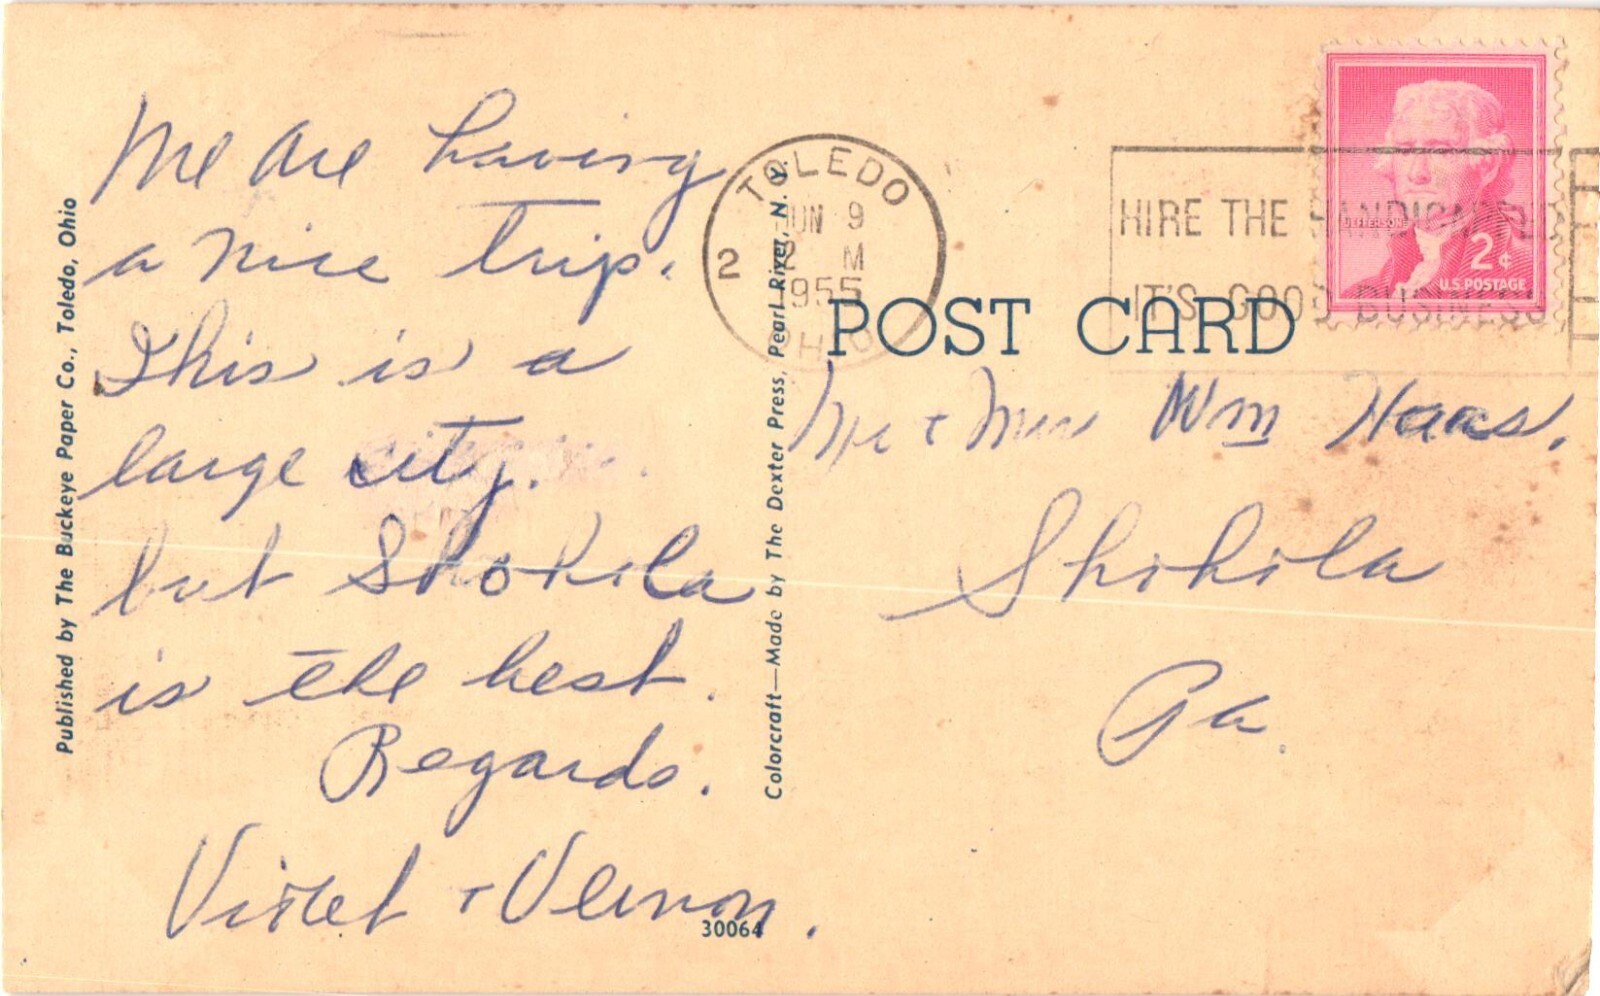 We are having
a nice trip.
This is a
large city.
but Shohola
is the best.
Regards.
Violet + Vernon.
Published by The Buckeye Paper Co., Toledo, Ohio
Colorcraft—Made by The Dexter Press, Pearl River, N. Y.
30064
TOLEDO
JUN 9
2 2 M
1955
OHIO
HIRE THE HANDICAPPED
IT'S GOOD BUSINESS
JEFFERSON
2¢
U.S. POSTAGE
POST CARD
Mr + Mrs Wm Haas.
Shohola
Pa.